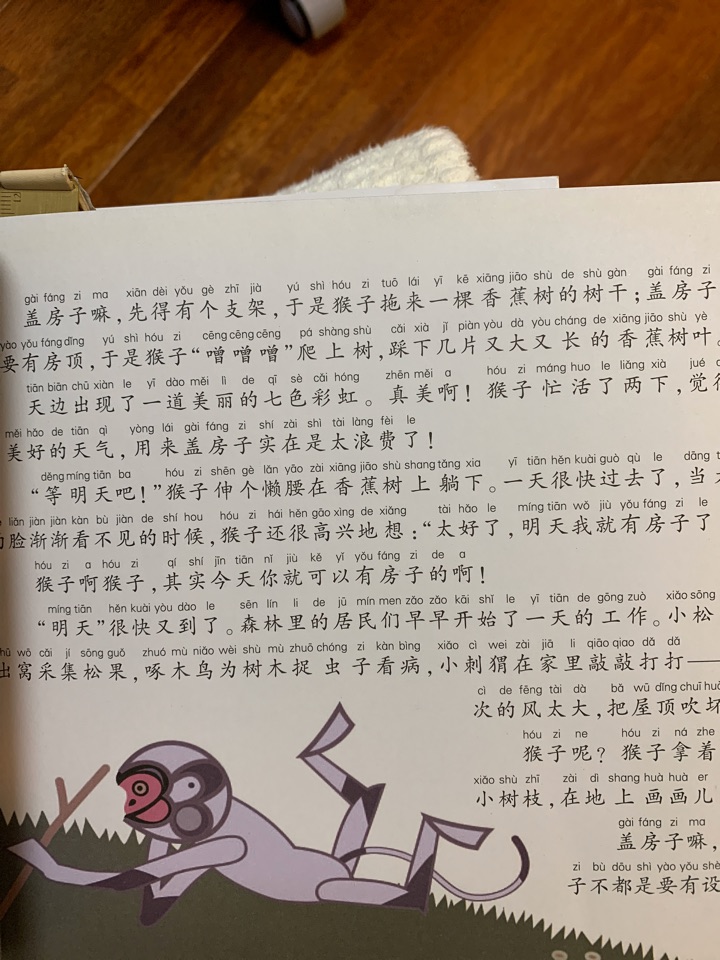 gài fáng zi ma xiān děi yǒu gè zhī jià yú shì hóu zi tuō lái yī kē xiāng jiāo shù de shù gàn gài fáng zi
盖房子嘛，先得有个支架，于是猴子拖来一棵香蕉树的树干；盖房子
yào yǒu fáng dǐng yú shì hóu zi cēng cēng cēng pá shàng shù cǎi xià jǐ piàn yòu dà yòu cháng de xiāng jiāo shù yè
要有房顶，于是猴子“噌噌噌”爬上树，踩下几片又大又长的香蕉树叶。
tiān biān chū xiàn le yī dào měi lì de qī sè cǎi hóng zhēn měi a hóu zi máng huo le liǎng xià jué
天边出现了一道美丽的七色彩虹。真美啊！猴子忙活了两下，觉得
měi hǎo de tiān qì yòng lái gài fáng zi shí zài shì tài làng fèi le
美好的天气，用来盖房子实在是太浪费了！
děng míng tiān ba hóu zi shēn gè lǎn yāo zài xiāng jiāo shù shang tǎng xia yī tiān hěn kuài guò qù le dāng
“等明天吧！”猴子伸个懒腰在香蕉树上躺下。一天很快过去了，当
liǎn jiàn jiàn kàn bù jiàn de shí hou hóu zi hái hěn gāo xìng de xiǎng tài hǎo le míng tiān wǒ jiù yǒu fáng zi le
脸渐渐看不见的时候，猴子还很高兴地想：“太好了，明天我就有房子了
hóu zi a hóu zi qí shí jīn tiān nǐ jiù kě yǐ yǒu fáng zi de a
猴子啊猴子，其实今天你就可以有房子的啊！
míng tiān hěn kuài yòu dào le sēn lín li de jū mín men zǎo zǎo kāi shǐ le yī tiān de gōng zuò xiǎo sōng
“明天”很快又到了。森林里的居民们早早开始了一天的工作。小松
chū wō cǎi jí sōng guǒ zhuó mù niǎo wèi shù mù zhuō chóng zi kàn bìng xiǎo cì wei zài jiā li qiāo qiao dǎ dǎ
出窝采集松果，啄木鸟为树木捉虫子看病，小刺猬在家里敲敲打打——
cì de fēng tài dà bǎ wū dǐng chuī huài
次的风太大，把屋顶吹坏
hóu zi ne hóu zi ná zhe
猴子呢？猴子拿着
xiǎo shù zhī zài dì shang huà huà er
小树枝，在地上画画儿
gài fáng zi ma
盖房子嘛，
zi bù dōu shì yào yǒu shè
子不都是要有设